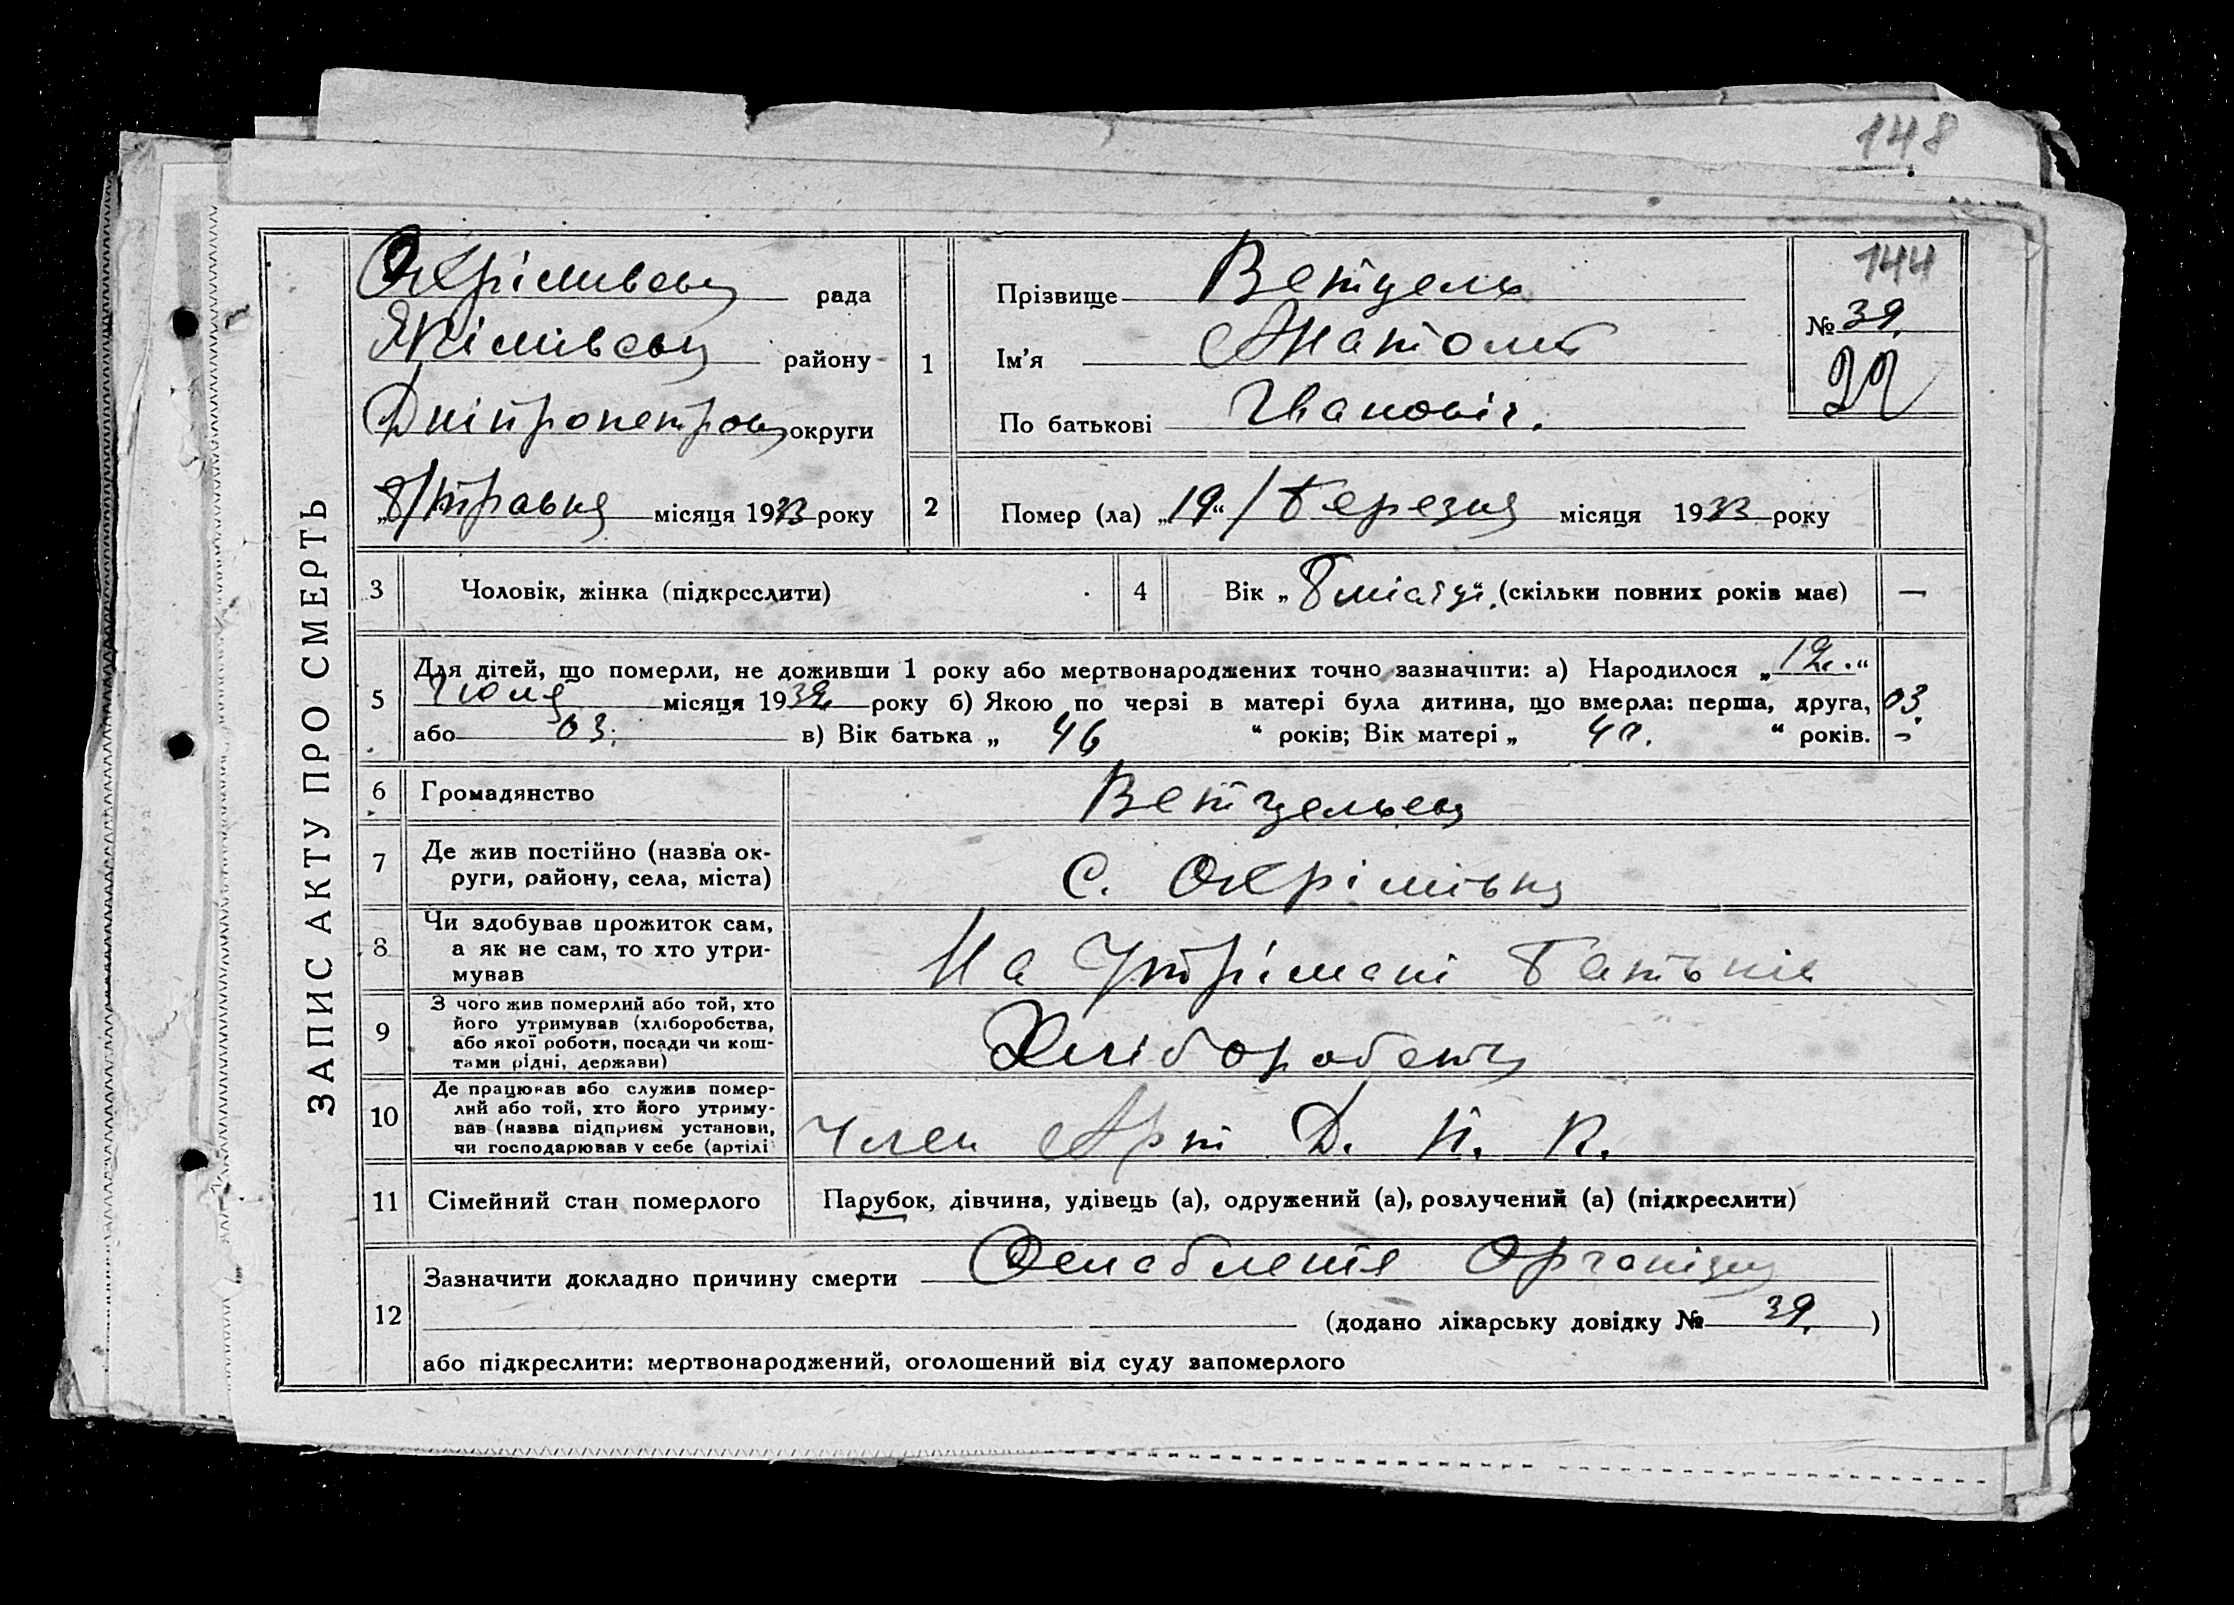 148
144
ЗАПИС АКТУ ПРО СМЕРТЬ
Охрімивськ рада
Якімівськ району
Дніпропетровськ округи
„8/травня місяця 1933 року
1
Прізвище Ветцель
Ім'я Анатолій
По батькові Іванович.
№ 39.
2
Помер (ла) „19“/березня місяця 1933 року
3 Чоловік, жінка (підкреслити)
4 Вік „8 місяц“. (скільки повних років має) —
5 Для дітей, що померли, не доживши 1 року або мертвонароджених точно зазначити: а) Народилося „12.“
Июля місяця 1932 року б) Якою по черзі в матері була дитина, що вмерла: перша, друга, 03.
або 03. в) Вік батька „ 46 “ років; Вік матері „ 40. “ років. –
6 Громадянство
7 Де жив постійно (назва ок-
руги, району, села, міста)
С. Охрімівка
8 Чи здобував прожиток сам,
а як не сам, то хто утри-
мував
На утрімані батьків
9 З чого жив померлий або той, хто
його утримував (хліборобства,
або якої роботи, посади чи кош-
тами рідні, держави)
10 Де працював або служив помер-
лий або той, хто його утриму-
вав (назва підприєм установи,
чи господарював у себе (артілі
Член Арт Д. Н. К.
11 Сімейний стан померлого
Парубок, дівчина, удівець (а), одружений (а), розлучений (а) (підкреслити)
12 Зазначити докладно причину смерти Ослаблення Організму
(додано лікарську довідку № 39. )
або підкреслити: мертвонароджений, оголошений від суду запомерлого